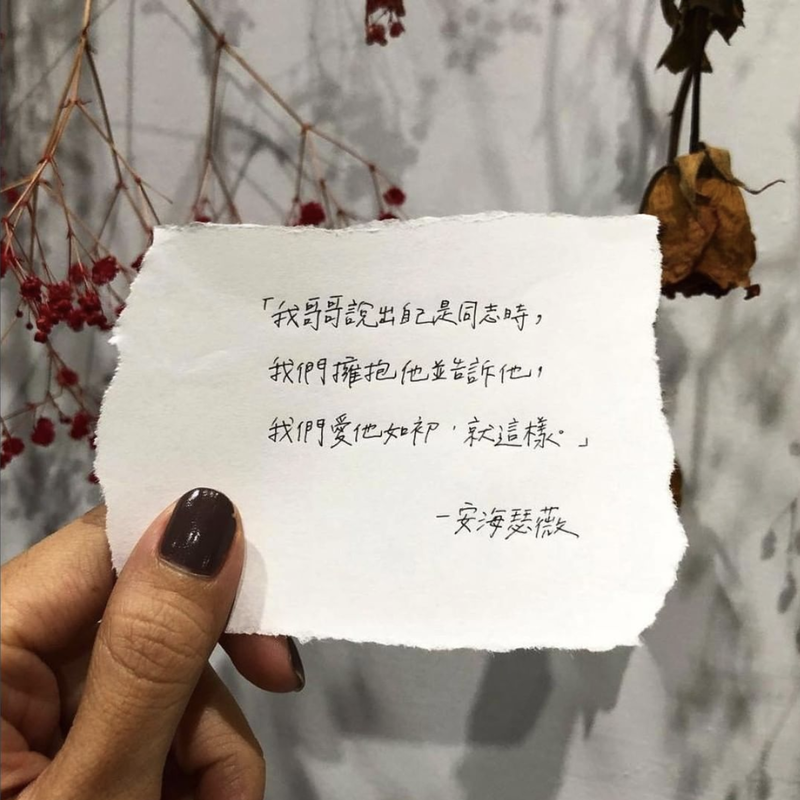 「我哥哥說出自己是同志時，
我們擁抱他並告訴他，
我們愛他如初，就這樣。」
—安海瑟薇